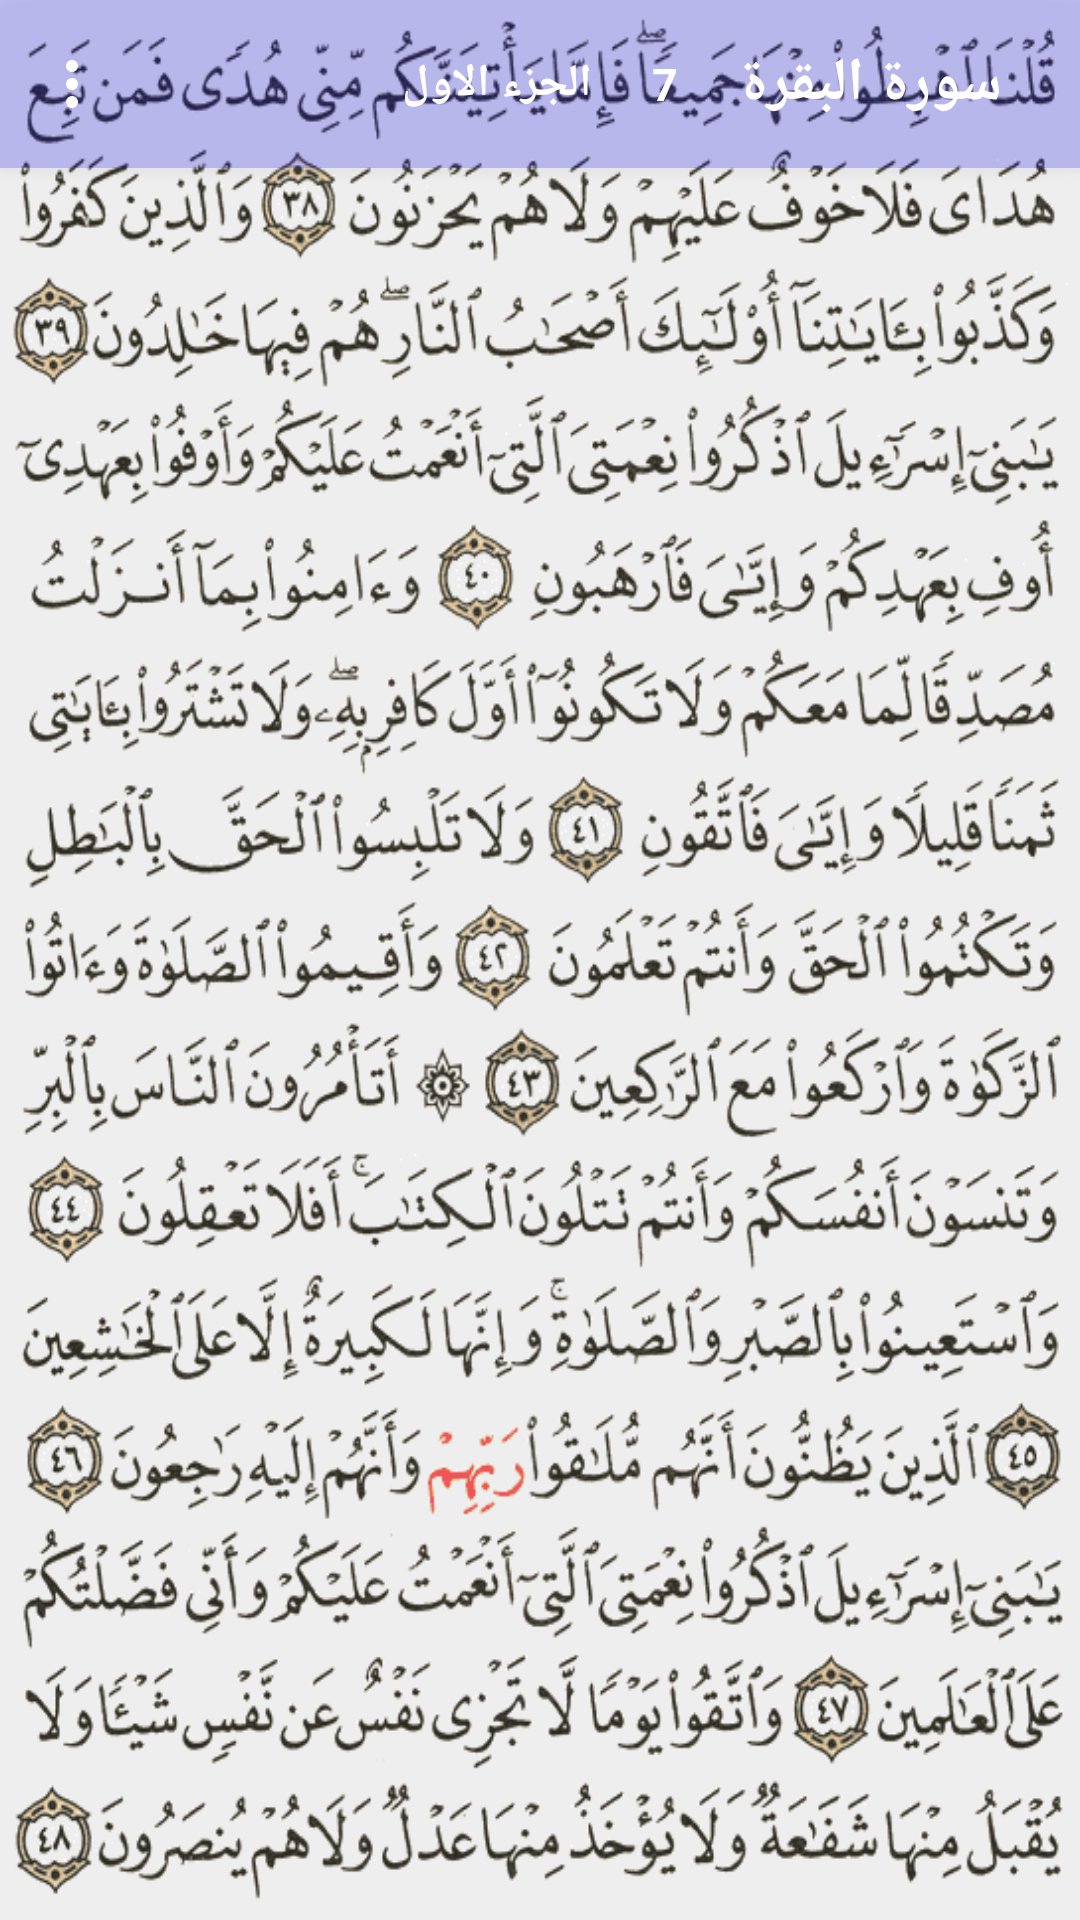 سورة البقرة 7 الجزء الاول
قُلْنَا ٱهْبِطُوا۟ مِنْهَا جَمِيعًۭا ۖ فَإِمَّا يَأْتِيَنَّكُم مِّنِّى هُدًۭى فَمَن تَبِعَ
هُدَاىَ فَلَا خَوْفٌ عَلَيْهِمْ وَلَا هُمْ يَحْزَنُونَ ٣٨ وَٱلَّذِينَ كَفَرُوا۟
وَكَذَّبُوا۟ بِـَٔايَـٰتِنَآ أُو۟لَـٰٓئِكَ أَصْحَـٰبُ ٱلنَّارِ ۖ هُمْ فِيهَا خَـٰلِدُونَ ٣٩
يَـٰبَنِىٓ إِسْرَٰٓءِيلَ ٱذْكُرُوا۟ نِعْمَتِىَ ٱلَّتِىٓ أَنْعَمْتُ عَلَيْكُمْ وَأَوْفُوا۟ بِعَهْدِىٓ
أُوفِ بِعَهْدِكُمْ وَإِيَّـٰىَ فَٱرْهَبُونِ ٤٠ وَءَامِنُوا۟ بِمَآ أَنزَلْتُ
مُصَدِّقًۭا لِّمَا مَعَكُمْ وَلَا تَكُونُوٓا۟ أَوَّلَ كَافِرٍۭ بِهِۦ ۖ وَلَا تَشْتَرُوا۟ بِـَٔايَـٰتِى
ثَمَنًۭا قَلِيلًۭا وَإِيَّـٰىَ فَٱتَّقُونِ ٤١ وَلَا تَلْبِسُوا۟ ٱلْحَقَّ بِٱلْبَـٰطِلِ
وَتَكْتُمُوا۟ ٱلْحَقَّ وَأَنتُمْ تَعْلَمُونَ ٤٢ وَأَقِيمُوا۟ ٱلصَّلَوٰةَ وَءَاتُوا۟
ٱلزَّكَوٰةَ وَٱرْكَعُوا۟ مَعَ ٱلرَّٰكِعِينَ ٤٣ ۞ أَتَأْمُرُونَ ٱلنَّاسَ بِٱلْبِرِّ
وَتَنسَوْنَ أَنفُسَكُمْ وَأَنتُمْ تَتْلُونَ ٱلْكِتَـٰبَ ۚ أَفَلَا تَعْقِلُونَ ٤٤
وَٱسْتَعِينُوا۟ بِٱلصَّبْرِ وَٱلصَّلَوٰةِ ۚ وَإِنَّهَا لَكَبِيرَةٌ إِلَّا عَلَى ٱلْخَـٰشِعِينَ
٤٥ ٱلَّذِينَ يَظُنُّونَ أَنَّهُم مُّلَـٰقُوا۟ رَبِّهِمْ وَأَنَّهُمْ إِلَيْهِ رَٰجِعُونَ ٤٦
يَـٰبَنِىٓ إِسْرَٰٓءِيلَ ٱذْكُرُوا۟ نِعْمَتِىَ ٱلَّتِىٓ أَنْعَمْتُ عَلَيْكُمْ وَأَنِّى فَضَّلْتُكُمْ
عَلَى ٱلْعَـٰلَمِينَ ٤٧ وَٱتَّقُوا۟ يَوْمًۭا لَّا تَجْزِى نَفْسٌ عَن نَّفْسٍۢ شَيْـًۭٔا وَلَا
يُقْبَلُ مِنْهَا شَفَـٰعَةٌۭ وَلَا يُؤْخَذُ مِنْهَا عَدْلٌۭ وَلَا هُمْ يُنصَرُونَ ٤٨